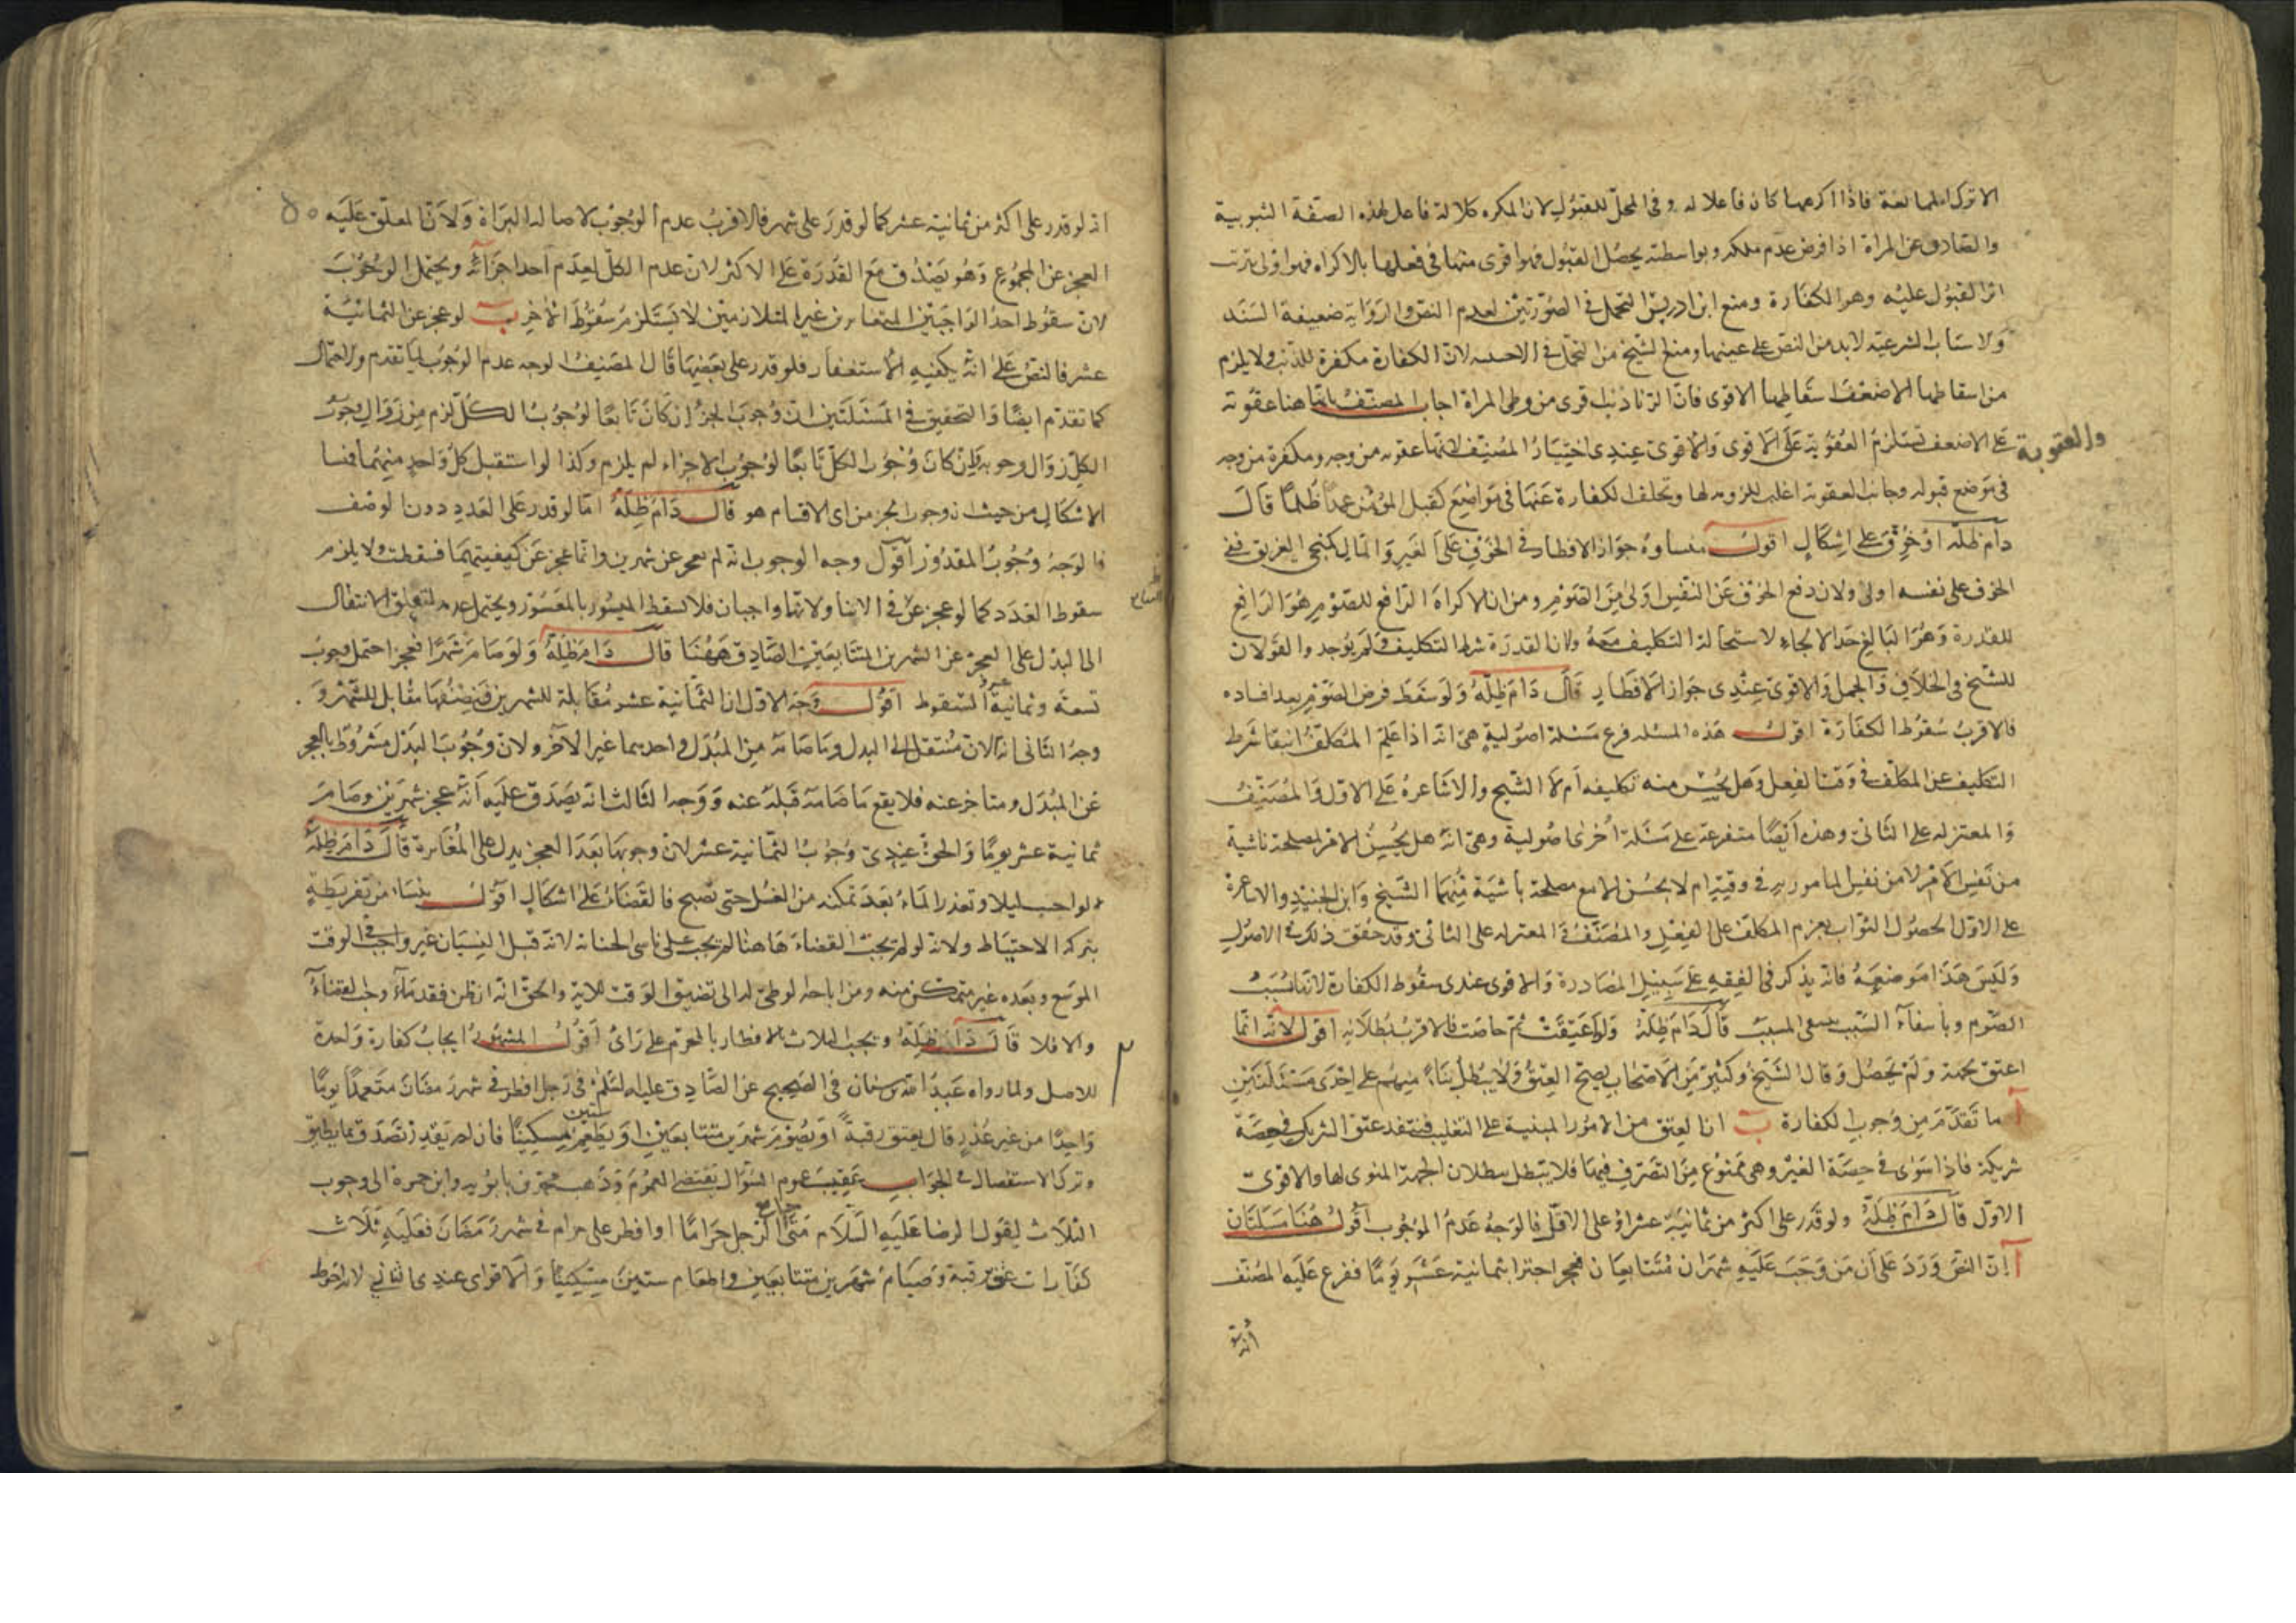 الا ترك الممانعة فاذا اكرهها كان فاعلا له وفي المحل للقبول لان المكره كالالة فاعل لهذه الصفة الثبوتية
والصادق عن المراة اذا فرض عدم ملكه وبواسطته يحصل القبول فهو اقوى منها في فعلها بالاكراه فهو اولى بترتب
اثر القبول عليه وهو الكفارة ومنع ابن ادريس التحمل في الصورتين لعدم النص والرواية ضعيفة السند
والاسباب الشرعية لابد من النص على عينها ومنع الشيخ من التحمل في الاجنبية لان الكفارة مكفرة للذنب ولا يلزم
من اسقاطها الاضعف اسقاطها الاقوى فان الزنا ذنب اقوى من وطي المراة اجاب المصنف بانها هنا عقوبة
والعقوبة على الاضعف تستلزم العقوبة على الاقوى والاقوى عندي اختيار المصنف لانها عقوبه من وجه ومكفرة من وجه
في موضع قبوله وجانب العقوبة اغلب للزومه لها وتخلف الكفارة عنها في مواضع كقتل المؤمن عمدا ظلما قال
دام ظله او خوف على اشكال اقول منساوه جواز الافطار في الخوف على الغير والمال كمنجي الغريق ففي
الخوف على نفسه اولى ولان دفع الخوف عن النفس اولى من الصوم ومن ان الاكراه الرافع للصوم هو الرافع
للقدرة وهو البالغ حد الالجاء لاستحالة التكليف معه ولان القدرة شرط التكليف ولم يوجد والقولان
للشيخ في الخلاف والجمل والاقوى عندي جواز الافطار قال دام ظله ولو سقط فرض الصوم بعد افساده
فالاقرب سقوط الكفارة اقول هذه المسئله فرع مسئلة اصولية هي انه اذا علم المكلف انتفا شرط
التكليف عن المكلف في وقت الفعل وهل يحسن منه تكليفه ام لا الشيخ والاشاعرة على الاول والمصنف
والمعتزله على الثاني وهذه ايضا متفرعة على مسئلة اخرى اصولية وهي انه هل يحسن الامر لمصلحة ناشية
من نفس الامر لا من نفس المامور به في وقته ام لا يحسن الا مع مصلحة ناشية منهما الشيخ وابن الجنيد والاشاعرة
على الاول لحصول الثواب بعزم المكلف على الفعل والمصنف والمعتزله على الثاني وقد حقق ذلك في الاصول
وليس هذا موضعه فانه يذكر في الفقه على سبيل المصادرة والاقوى عندي سقوط الكفارة لانها بسبب
الصوم وبانتفاء السبب ينتفي المسبب قال دام ظله ولو اعتقت ثم حاضت فالاقرب بطلانه اقول لانه انما
اعتق بجهة ولم يحصل وقال الشيخ وكثير من الاصحاب يصح العتق ولا يبطل بناء منهم على احدى مسئلتين
آ ما تقدم من وجوب الكفارة ب ان العتق من الامور المبنية على التغليب فينفذ عتق الشريك في حصة
شريكه فاذا سرى في حصة الغير وهي ممنوع من التصرف فيها فلا يبطل ببطلان الجهة المنوي لها والاقوى
الاول قال دام ظله ولو قدر على اكثر من ثمانية عشر او على الاقل فالوجه عدم الوجوب اقول هنا مسئلتان
آ ان النص ورد على ان من وجب عليه شهران متتابعان فعجز اجتزا بثمانية عشر يوما ففرع عليه المصنف
انه لو
٥٠
انه لو قدر على اكثر من ثمانية عشر كما لو قدر على شهر فالاقرب عدم الوجوب لاصالة البراة ولان المعلق عليه
العجز عن المجموع وهو يصدق مع القدرة على الاكثر لان عدم الكل لعدم احد اجزائه ويحتمل الوجوب
لان سقوط احد الواجبين المتغايرين غير المتلازمين لا يستلزم سقوط الاخر ب لو عجز عن الثمانية
عشر فالنص على انه يكفيه الاستغفار فلو قدر على بعضها قال المصنف الوجه عدم الوجوب لما تقدم والاحتمال
كما تقدم ايضا والتحقيق في المسئلتين ان وجوب الجزء ان كان تابعا لوجوب الكل لزم من زوال وجوب
الكل زوال وجوبه وان كان وجوب الكل تابعا لوجوب الاجزاء لم يلزم وكذا لو استقبل كل واحد منهما فمنسا
الاشكال من حيث ان وجوب الجزء من اي الاقسام هو قال دام ظله اما لو قدر على العدد دون الوصف
فالوجه وجوب المقدور اقول وجه الوجوب انه لم يعجز عن شهرين وانما عجز عن كيفيتهما فسقطت ولا يلزم
سقوط العدد كما لو عجز عن في الاثنا ولانهما واجبان فلا يسقط الميسور بالمعسور ويحتمل عدمه لتعلق الانتقال
الى البدل على العجز عن الشهرين المتتابعين الصادق ههنا قال دام ظله ولو صام شهرا فعجز احتمل وجوب
تسعة وثمانية عشر والسقوط اقول وجه الاول ان الثمانية عشر مقابلة للشهرين فنصفها مقابل للشهر و
وجه الثاني انه الان منتقل الى البدل وما صامه من المبدل واحدهما غير الاخر ولان وجوب البدل مشروط بالعجز
عن المبدل ومتاخر عنه فلا يقع ما صامه قبله عنه ووجه الثالث انه يصدق عليه انه عجز شهرين وصام
ثمانية عشر يوما والحق عندي وجوب الثمانية عشر لان وجوبها بعد العجز يدل على المغايرة قال دام ظله
ولو اجنب ليلا وتعذر الماء بعد تمكنه من الغسل حتى تصبح فالقضاء على اشكال اقول ينشا من تفريطه
بتركه الاحتياط ولانه لو لم يجب القضاء هاهنا لم يجب على ناسي الجنابة لانه قبل النسيان غير واجب في الوقت
الموسع وبعده غير متمكن منه ومن اباحة الوطي له الى تضيق الوقت للاية والحق انه ان ظن فقد ماء وجب القضاء
والا فلا قال دام ظله وتجب الثلاث بالافطار بالمحرم على راي اقول المشهور ايجاب كفارة واحدة
للاصل ولما رواه عبد الله بن سنان في الصحيح عن الصادق عليه السلم في رجل افطر في شهر رمضان متعمدا يوما
واحدا من غير عذر قال يعتق رقبة او يصوم شهرين متتابعين او يطعم ستين مسكينا فان لم يقدر تصدق بما يطيق
وترك الاستفصال في الجواب عقيب عموم السؤال يقتضي العموم وذهب محمد بن بابويه وابن حمزة الى وجوب
الثلاث لقول الرضا عليه السلام متى جامع الرجل حراما او افطر على حرام في شهر رمضان فعليه ثلاث
كفارات عتق رقبة وصيام شهرين متتابعين واطعام ستين مسكينا والاقوى عندي الثاني لانه احوط